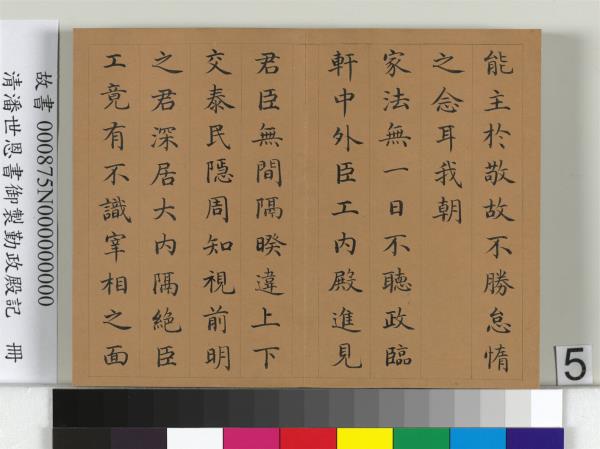 能主於敬故不勝怠惰
之念耳我朝
家法無一日不聽政臨
軒中外臣工內殿進見
君臣無間隔暌違上下
交泰民隱周知視前明
之君深居大內隔絕臣
工竟有不識宰相之面
故書 000875N000000000
清潘世恩書御製勤政殿記 冊
5